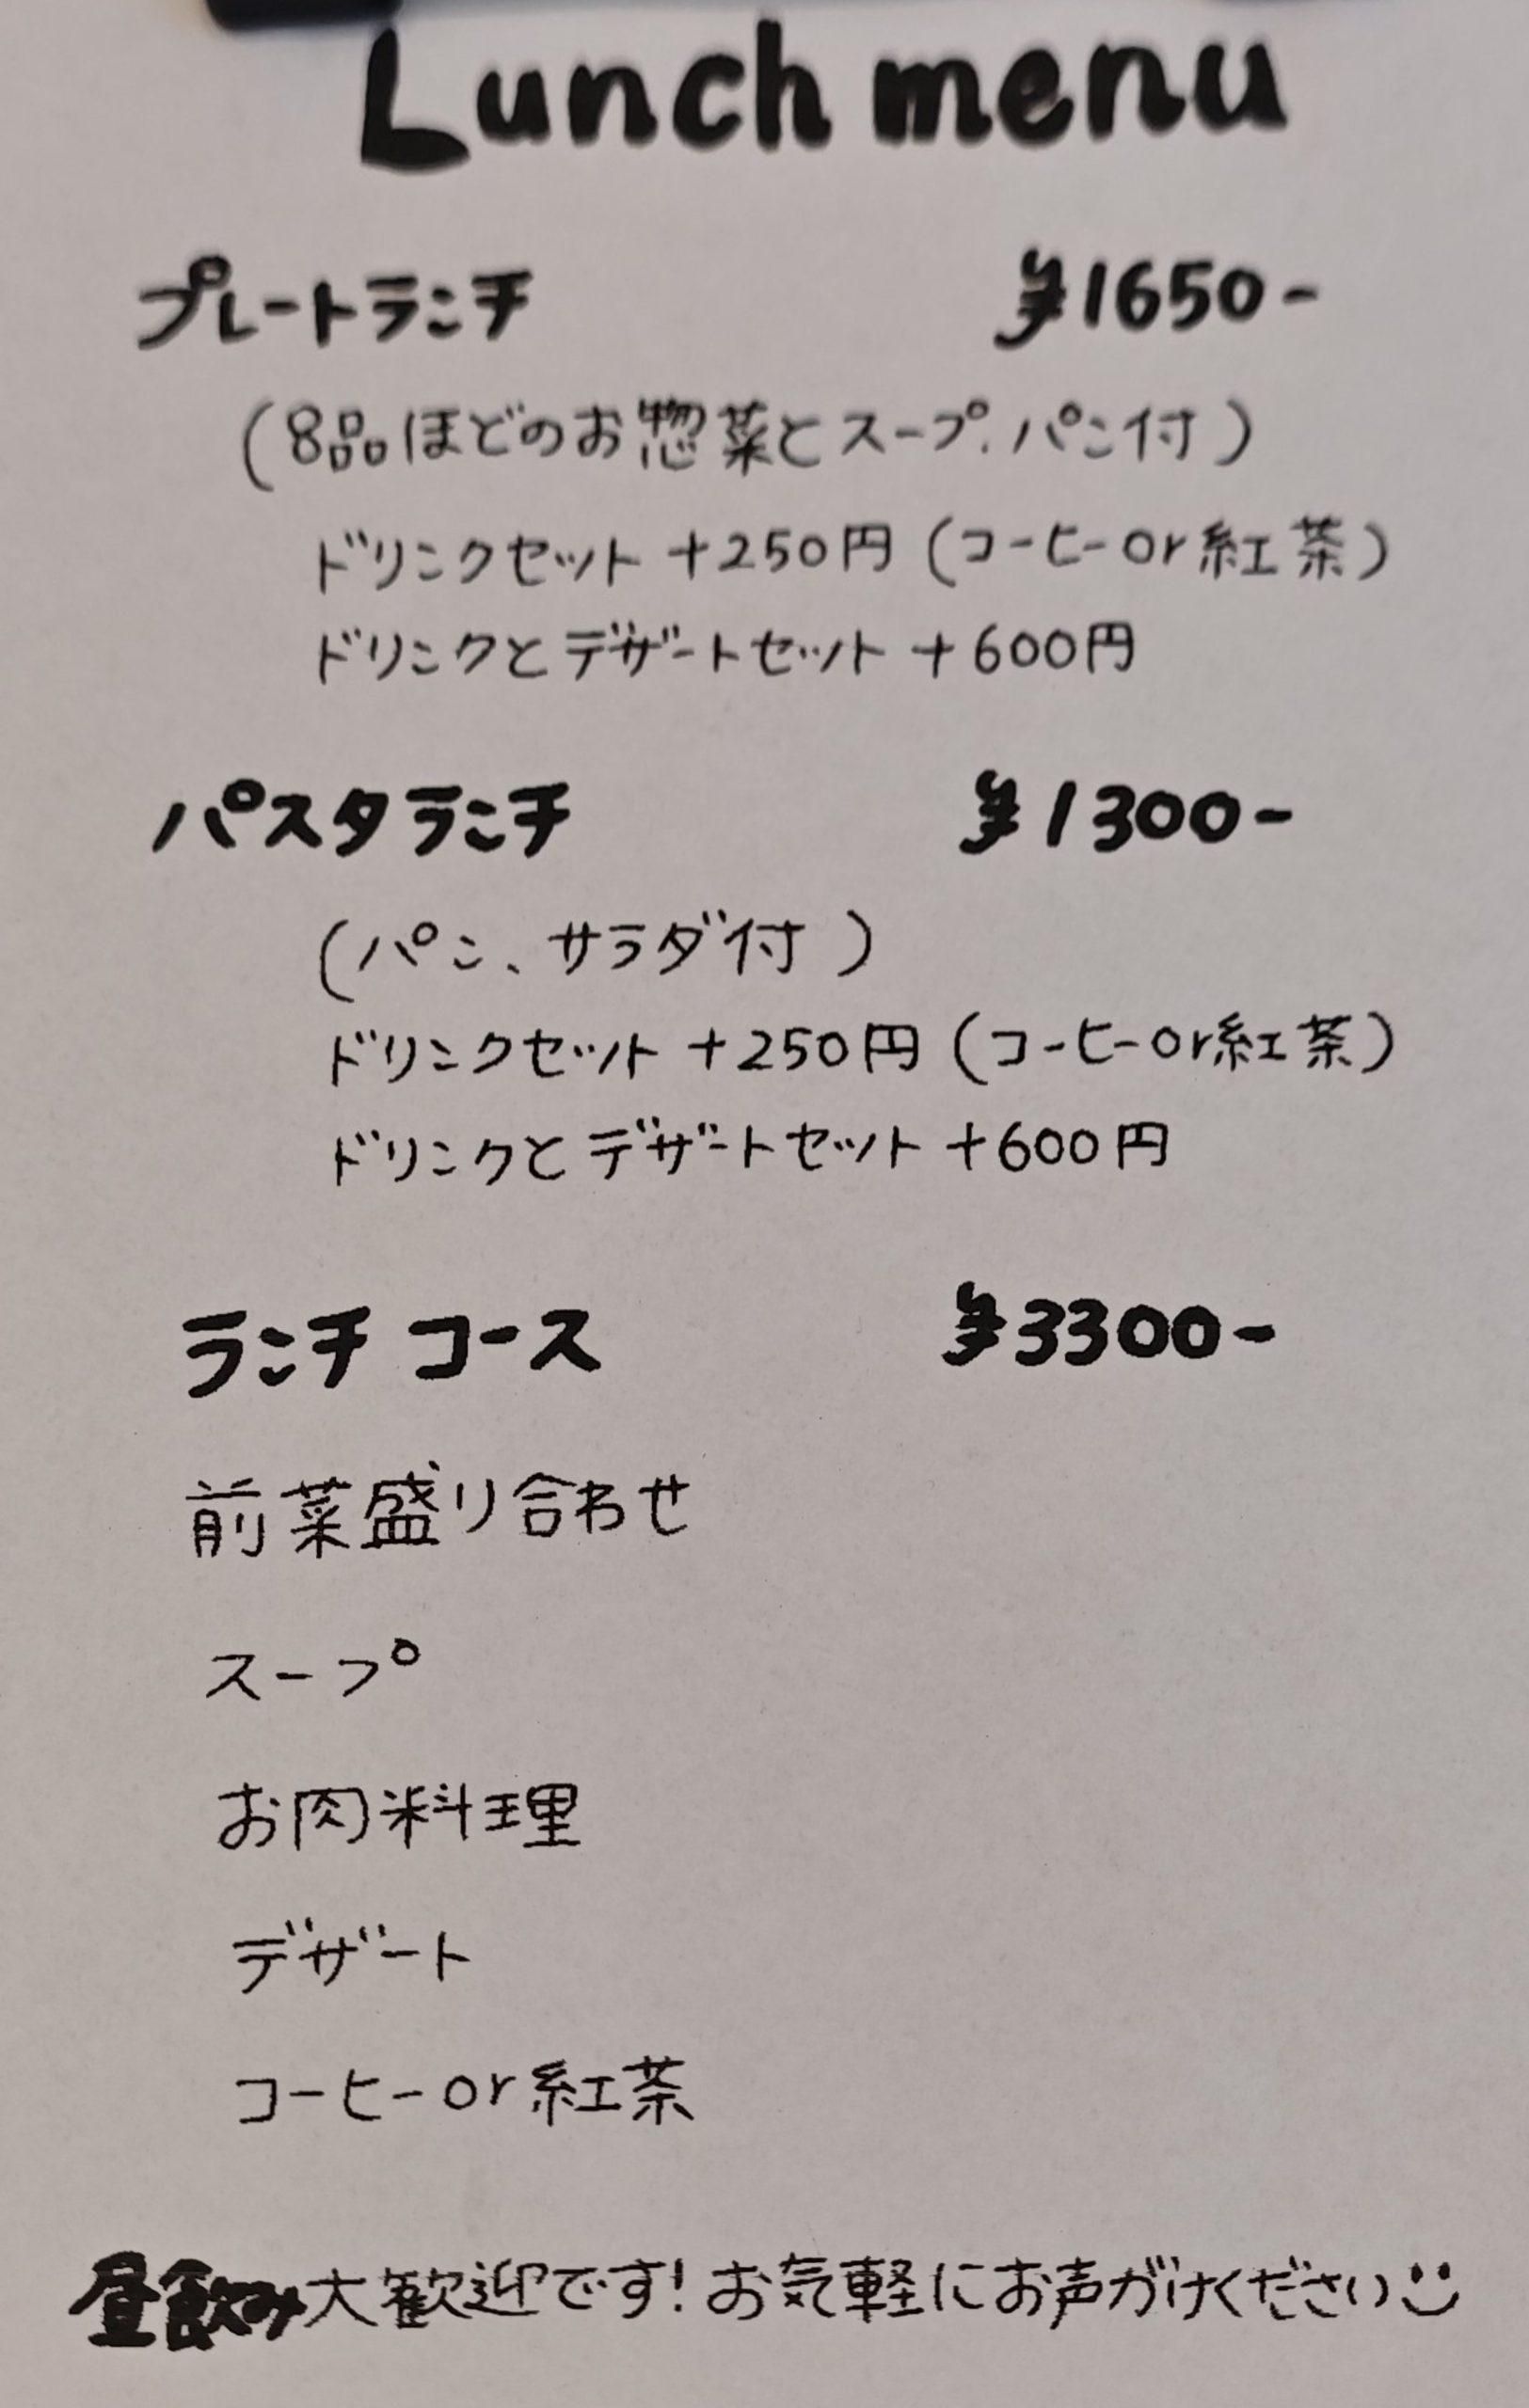 Lunch menu
プレートランチ ¥1650-
(8品ほどのお惣菜とスープ、パン付)
ドリンクセット +250円 (コーヒーor紅茶)
ドリンクとデザートセット +600円
パスタランチ ¥1300-
(パン、サラダ付)
ドリンクセット +250円 (コーヒーor紅茶)
ドリンクとデザートセット +600円
ランチコース ¥3300-
前菜盛り合わせ
スープ
お肉料理
デザート
コーヒーor紅茶
昼飲み大歓迎です!お気軽にお声がけください